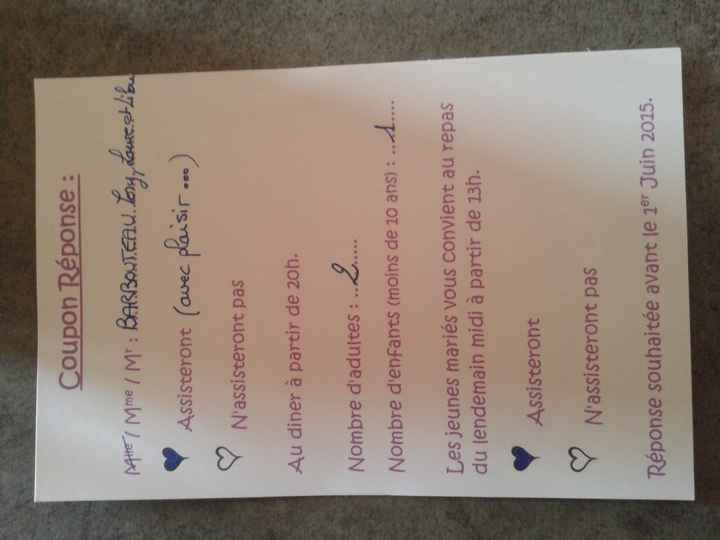 Coupon Réponse :
Mlle / Mme / Mr : BARBONTEAU. Tony, Laure et Lilou
Assisteront (avec plaisir ...)
N'assisteront pas
Au diner à partir de 20h.
Nombre d'adultes : ..2.....
Nombre d'enfants (moins de 10 ans) : ...1.....
Les jeunes mariés vous convient au repas
du lendemain midi à partir de 13h.
Assisteront
N'assisteront pas
Réponse souhaitée avant le 1er Juin 2015.